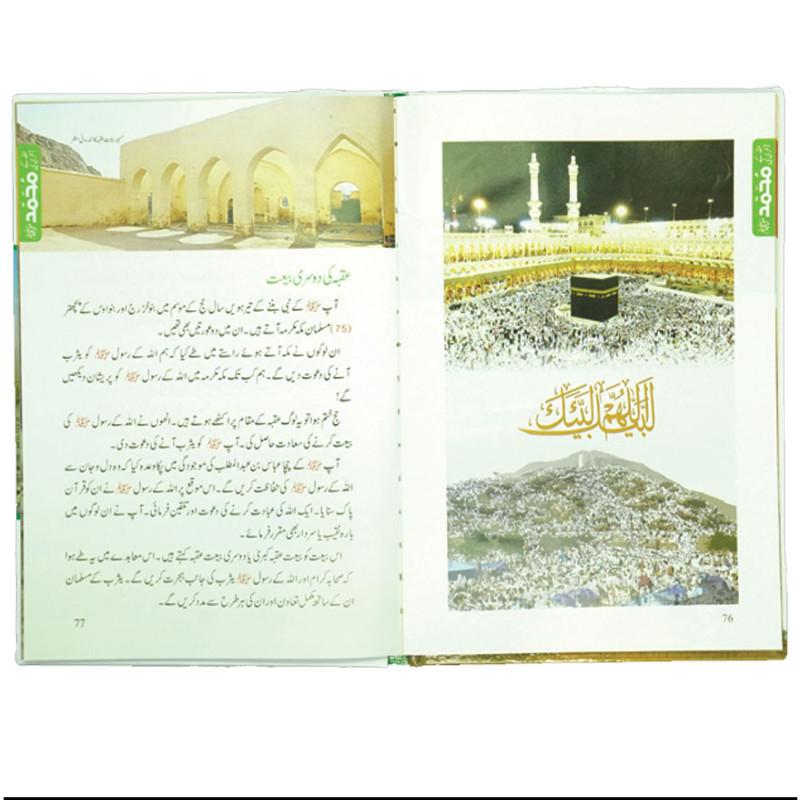 اللہ کے
آخری نبی
مُحَمَّد ﷺ
لبيك اللهم لبيك
76
مسجد بیعت عقبہ کا اندرونی منظر
اللہ کے
آخری نبی
مُحَمَّد ﷺ
عقبہ کی دوسری بیعت
آپ ﷺ کے نبی بننے کے تیرہویں سال حج کے موسم میں بنو خزرج اور بنو اوس کے پچھتر
(75) مسلمان مکہ مکرمہ آتے ہیں۔ ان میں دو عورتیں بھی تھیں۔
ان لوگوں نے مکہ آتے ہوئے راستے میں طے کیا کہ ہم اللہ کے رسول ﷺ کو یثرب
آنے کی دعوت دیں گے۔ ہم کب تک مکہ مکرمہ میں اللہ کے رسول ﷺ کو پریشان دیکھیں
گے!
حج ختم ہوا تو یہ لوگ عقبہ کے مقام پر اکٹھے ہوتے ہیں۔ انھوں نے اللہ کے رسول ﷺ کی
بیعت کرنے کی سعادت حاصل کی۔ آپ ﷺ کو یثرب آنے کی دعوت دی۔
آپ ﷺ کے چچا عباس بن عبدالمطلب کی موجودگی میں پکا وعدہ کیا کہ وہ دل و جان سے
اللہ کے رسول ﷺ کی حفاظت کریں گے۔ اس موقع پر اللہ کے رسول ﷺ نے ان کو قرآن
پاک سنایا۔ ایک اللہ کی عبادت کرنے کی دعوت اور تلقین فرمائی۔ آپ نے ان لوگوں میں
بارہ نقیب یا سردار بھی مقرر فرمائے۔
اس بیعت کو بیعت عقبہ کبریٰ یا دوسری بیعت عقبہ کہتے ہیں۔ اس معاہدے میں یہ طے ہوا
کہ صحابہ کرام اور اللہ کے رسول ﷺ یثرب کی جانب ہجرت کریں گے۔ یثرب کے مسلمان
ان کے ساتھ مکمل تعاون اور ان کی ہر طرح سے مدد کریں گے۔
77